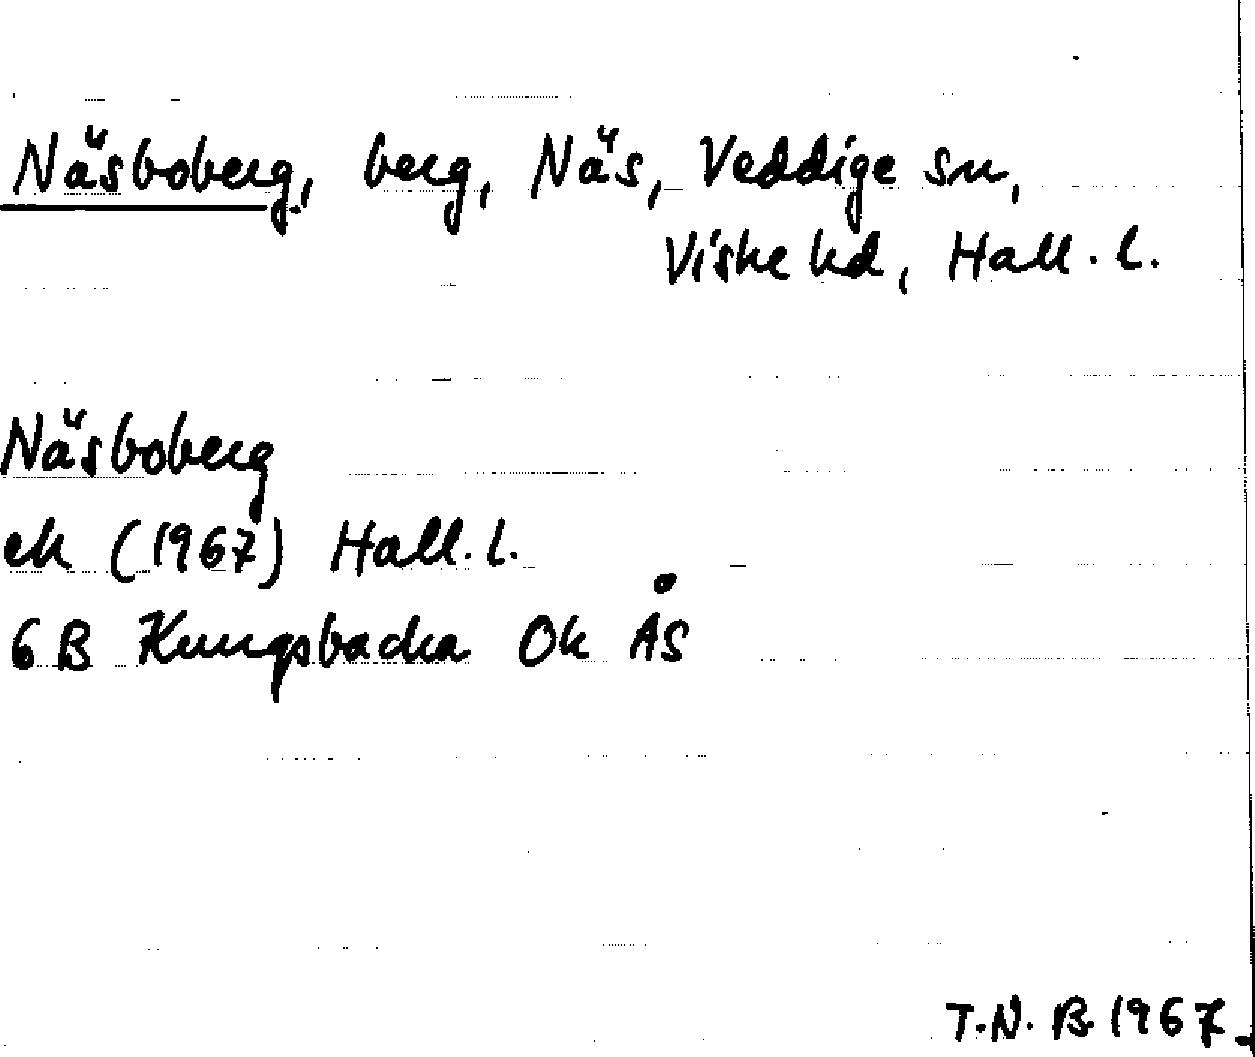 Näsboberg, berg, Näs, Veddige sn,
Viske hd, Hall. l.
Näsboberg
ek (1967) Hall. l.
6 B Kungsbacka Ok ÅS
T.N.B. 1967